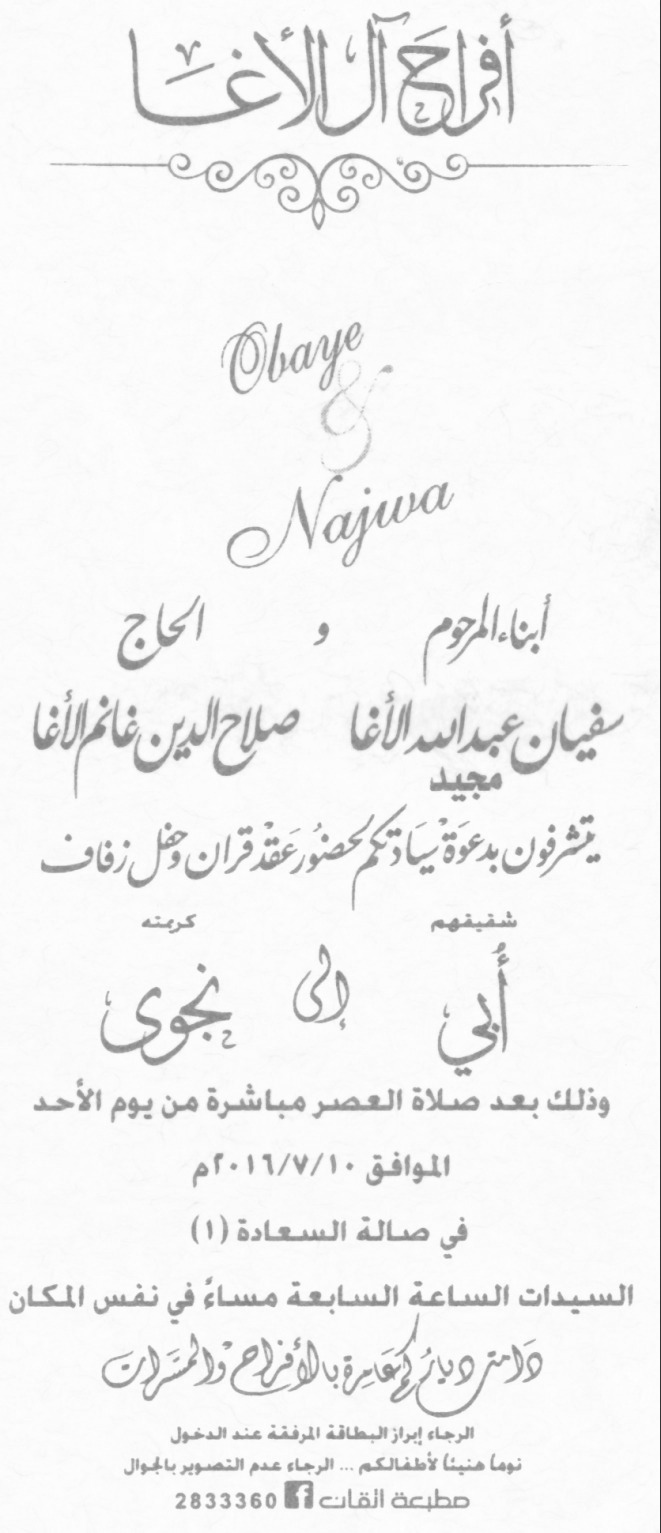 أفراح آل الأغا
Obaye
&
Najwa
أبناء المرحوم و الحاج
سفيان عبد الله الأغا صلاح الدين غانم الأغا
مجيد
يتشرفون بدعوة سيادتكم لحضور عقد قران وحفل زفاف
شقيقهم كريمته
أُبي إلى نجوى
وذلك بعد صلاة العصر مباشرة من يوم الأحد
الموافق ٢٠١٦/٧/١٠م
في صالة السعادة (١)
السيدات الساعة السابعة مساءً في نفس المكان
دامت دياركم عامرة بالأفراح والمسرات
الرجاء إبراز البطاقة المرفقة عند الدخول
نوماً هنيئاً لأطفالكم ... الرجاء عدم التصوير بالجوال
مطبعة اتقان f 2833360